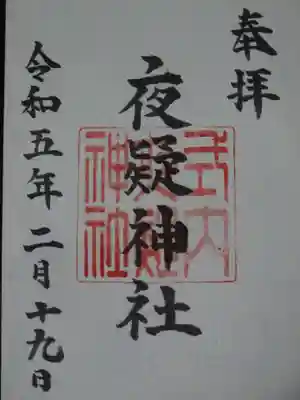 奉拝
夜疑神社
式内
夜疑
神社
令和五年二月十九日